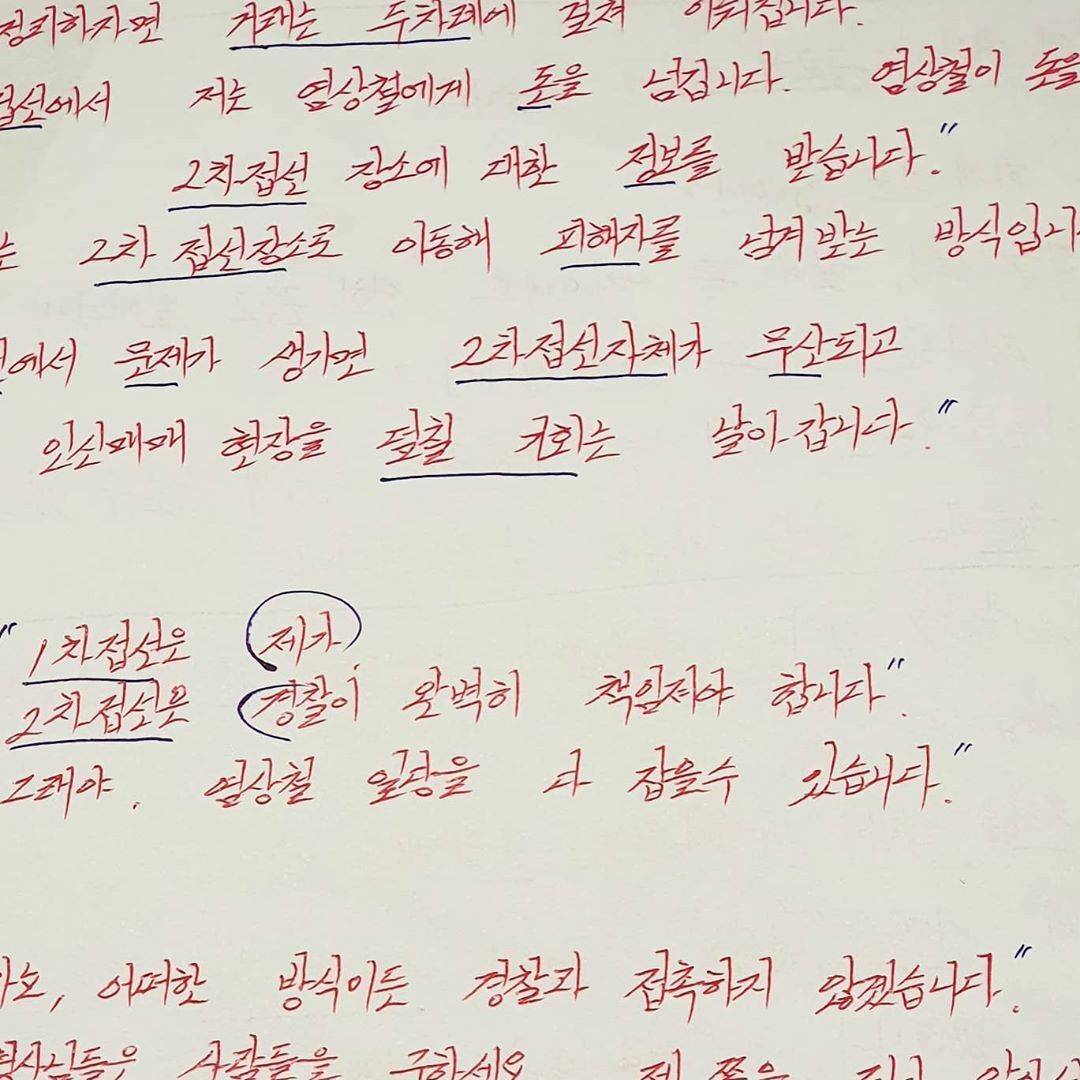 정리하자면 거래는 두차례에 걸쳐 이뤄집니다.
접선에서 저는 염상철에게 돈을 넘깁니다. 염상철이 돈을
2차접선 장소에 대한 정보를 받습니다."
는 2차 접선장소로 이동해 피해자를 넘겨받는 방식입니다
에서 문제가 생기면 2차접선자체가 무산되고
인신매매 현장을 덮칠 기회는 날아갑니다."
"1차접선은 제가,
2차접선은 경찰이 완벽히 책임져야 합니다".
그래야. 염상철 일당을 다 잡을수 있습니다."
, 어떠한 방식이든 경찰과 접촉하지 않겠습니다."
형사님들은 사람들을 구하세요